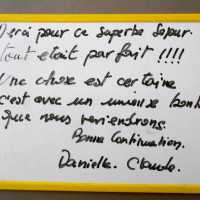 Merci pour ce superbe séjour.
tout était parfait !!!!
Une chose est certaine
c'est avec un immense bonh
que nous reviendrons.
Bonne Continuation.
Danielle. Claude.